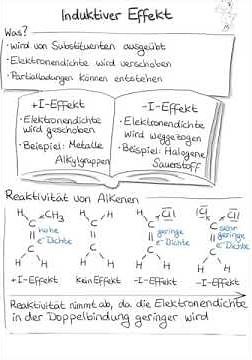 Induktiver Effekt
Was?
• wird von Substituenten ausgeübt
• Elektronendichte wird verschoben
• Partialladungen können entstehen
+I-Effekt
• Elektronendichte
wird geschoben
• Beispiel: Metalle
Alkylgruppen
-I-Effekt
• Elektronendichte
wird weggezogen
• Beispiel: Halogene
Sauerstoff
Reaktivität von Alkenen
H CH₃
C
hohe
e⁻ Dichte
C
H H
H H
C
C
H H
H Cl
C
geringe
e⁻ Dichte
C
H H
Cl Cl
C
sehr
geringe
e⁻ Dichte
C
H H
+I-Effekt kein Effekt -I-Effekt -I-Effekt
Reaktivität nimmt ab, da die Elektronendichte
in der Doppelbindung geringer wird